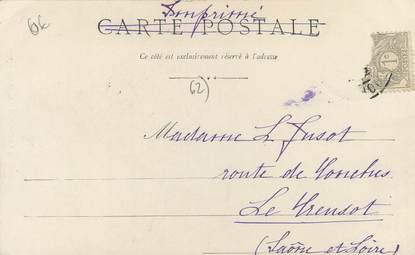 Imprimé
6€
CARTE POSTALE
Ce côté est exclusivement réservé à l'adresse
62)
Madame L Jusot
route de
Le Creusot
(Saône et Loire)